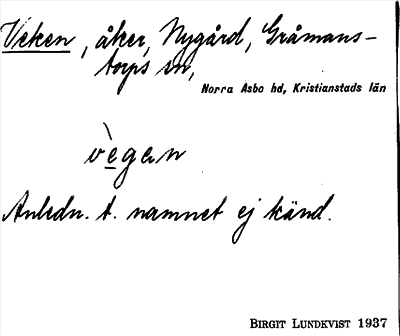 Veken, åker, Nygård, Gråmans-
torps sn,
Norra Åsbo hd, Kristianstads län
vègan
Anledn. t. namnet ej känd.
BIRGIT LUNDKVIST 1937